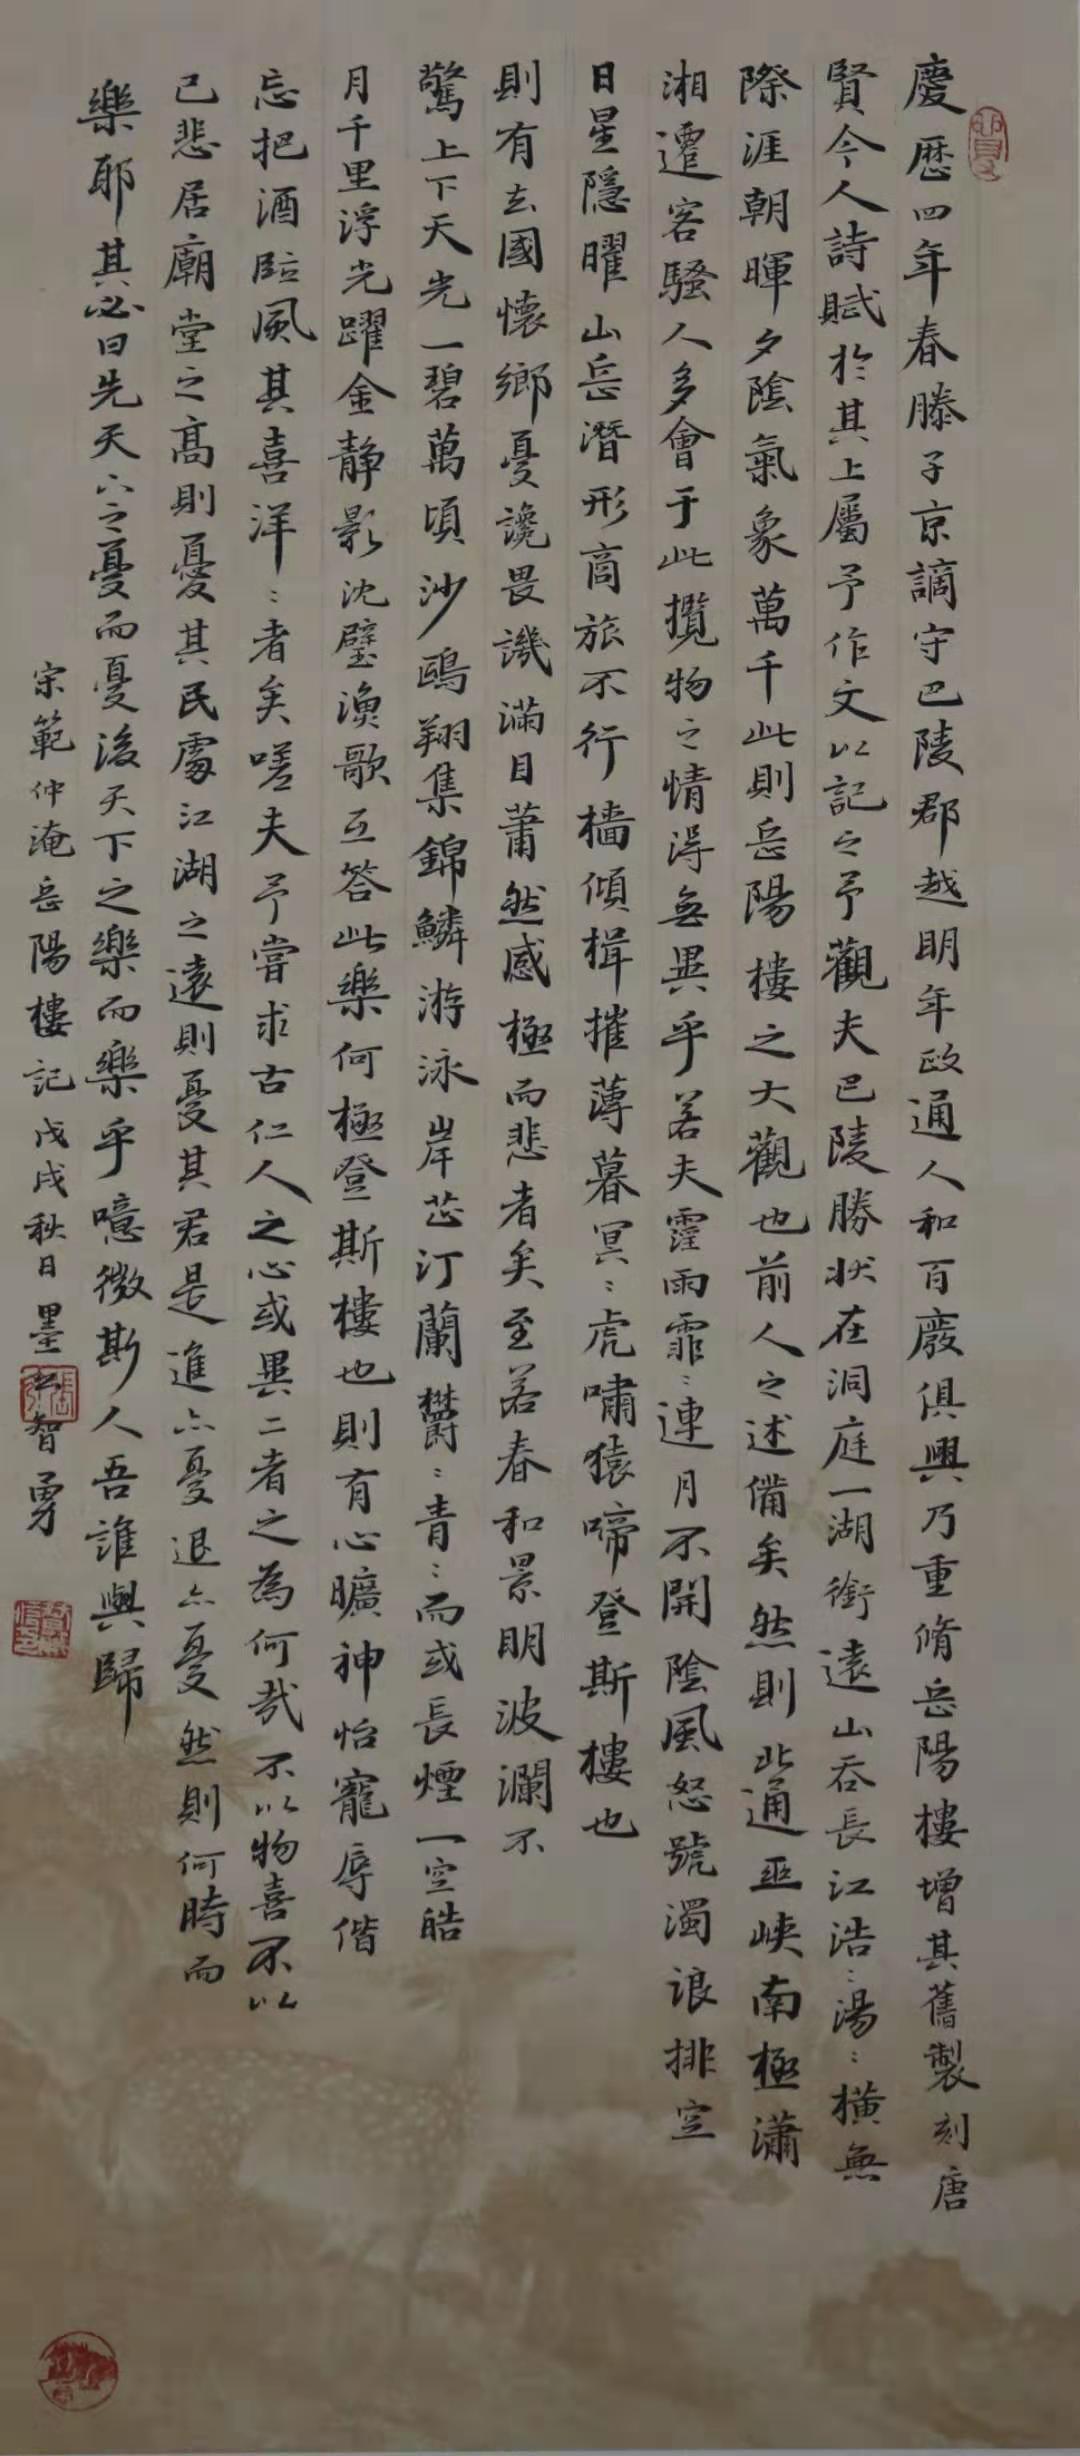 慶歷四年春滕子京謫守巴陵郡越明年政通人和百廢俱興乃重脩岳陽樓增其舊製刻唐
賢今人詩賦於其上屬予作文以記之予觀夫巴陵勝狀在洞庭一湖銜遠山吞長江浩〻湯〻橫無
際涯朝暉夕陰氣象萬千此則岳陽樓之大觀也前人之述備矣然則北通巫峽南極瀟
湘遷客騷人多會于此攬物之情得無異乎若夫霪雨霏〻連月不開陰風怒號濁浪排空
日星隱曜山岳潛形商旅不行檣傾楫摧薄暮冥〻虎嘯猿啼登斯樓也
則有去國懷鄉憂讒畏譏滿目蕭然感極而悲者矣至若春和景明波瀾不
驚上下天光一碧萬頃沙鷗翔集錦鱗游泳岸芷汀蘭鬱〻青〻而或長煙一空皓
月千里浮光躍金靜影沈璧漁歌互答此樂何極登斯樓也則有心曠神怡寵辱偕
忘把酒臨風其喜洋〻者矣嗟夫予嘗求古仁人之心或異二者之為何哉不以物喜不以
己悲居廟堂之高則憂其民處江湖之遠則憂其君是進亦憂退亦憂然則何時而
樂耶其必曰先天下之憂而憂後天下之樂而樂乎噫微斯人吾誰與歸
宋範仲淹岳陽樓記戊戌秋日墨公智勇